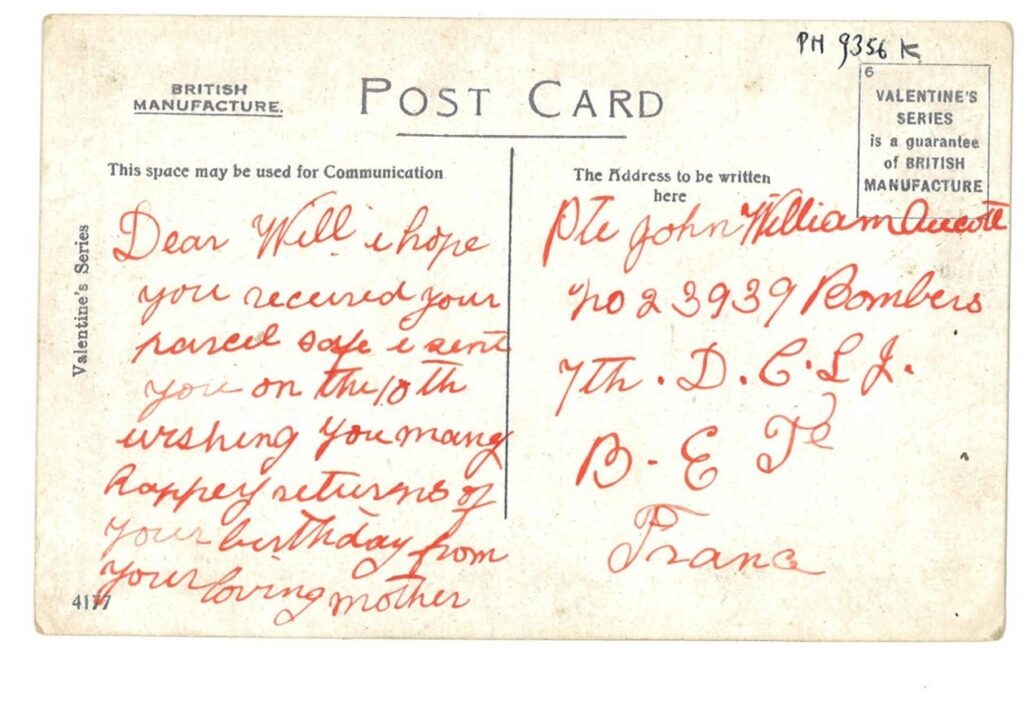 PH 9356 K
BRITISH
MANUFACTURE.
POST CARD
6
VALENTINE'S
SERIES
is a guarantee
of BRITISH
MANUFACTURE
This space may be used for Communication
The Address to be written
here
Valentine's Series
Dear Will i hope
you received your
parcel safe i sent
you on the 10th
wishing you many
happey returns of
your birthday from
your loving mother
4177
Pte John William
no 23939 Bombers
7th . D. C. L J.
B. E
Franc